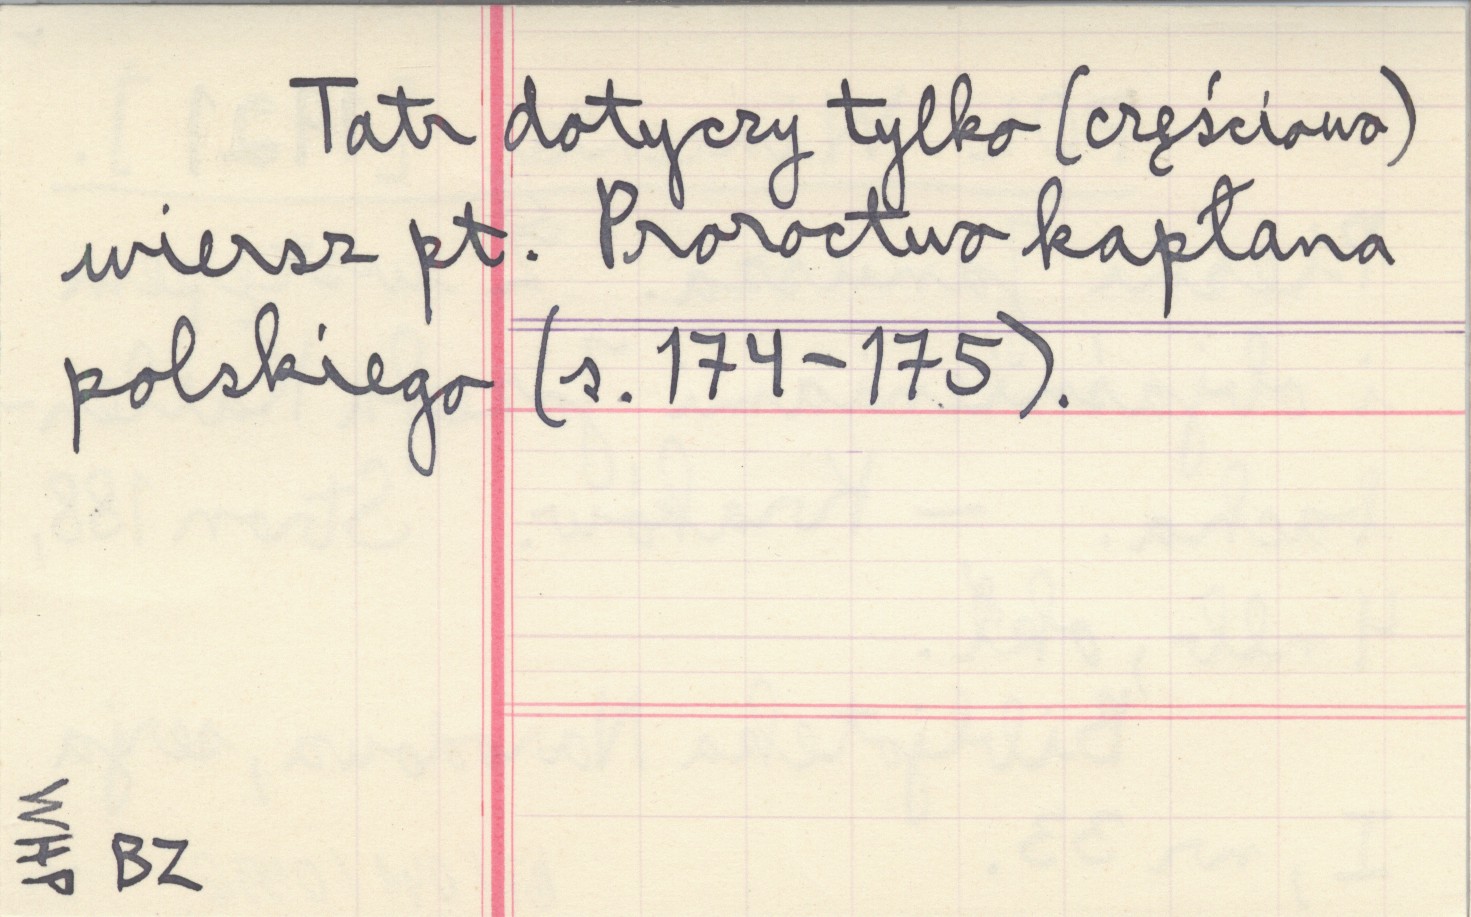 Tatr dotyczy tylko (częściowo)
wiersz pt. Proroctwo kapłana
polskiego (s. 174-175).
WHP
BZ